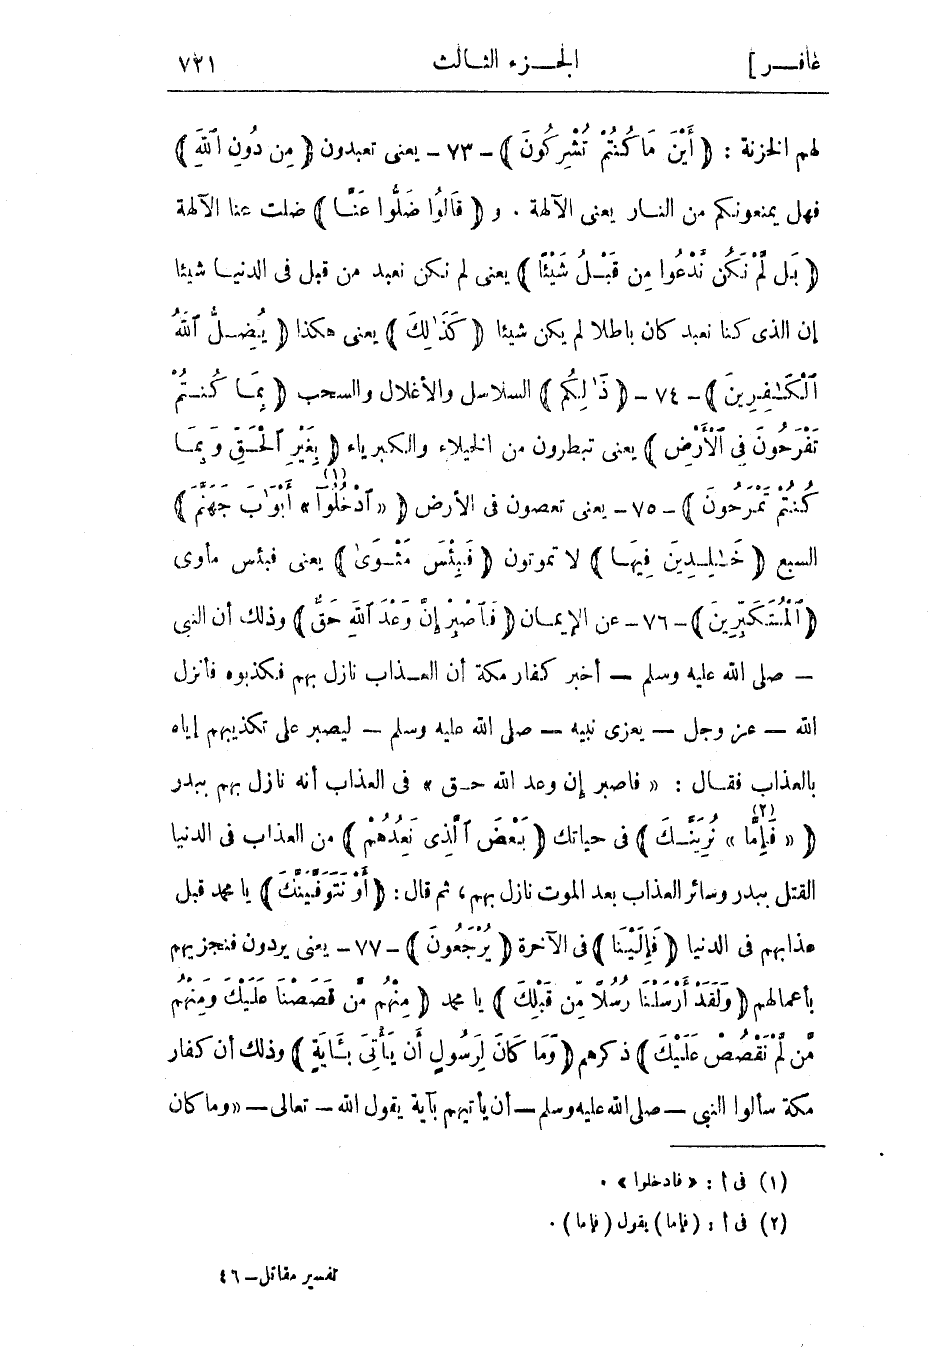 غافـر ] الجـزء الثـالث ٧٢١
لهم الخزنة : ﴿ أَيْنَ مَا كُنتُمْ تُشْرِكُونَ ﴾ - ٧٣ - يعنى تعبدون ﴿ مِن دُونِ ٱللَّهِ ﴾
فهل يمنعونكم من النـار يعنى الآلهة . و ﴿ قَالُوا ضَلُّوا عَنَّـا ﴾ ضلت عنا الآلهة
﴿ بَل لَّمْ نَكُن نَّدْعُوا مِن قَبْـلُ شَيْئًا ﴾ يعنى لم نكن نعبد من قبل فى الدنيـا شيئا
إن الذى كنا نعبد كان باطلا لم يكن شيئا ﴿ كَذَٰلِكَ ﴾ يعنى هكذا ﴿ يُضِـلُّ ٱللَّهُ
ٱلْكَـٰفِرِينَ ﴾ - ٧٤ - ﴿ ذَٰلِكُم ﴾ السلاسل والأغلال والسحب ﴿ بِمَـا كُنـتُمْ
تَفْرَحُونَ فِى ٱلْأَرْضِ ﴾ يعنى تبطرون من الخيلاء والكبرياء ﴿ بِغَيْرِ ٱلْحَـقِّ وَ بِمَـا
كُنتُمْ تَمْرَحُونَ ﴾ - ٧٥ - يعنى تعصون فى الأرض ﴿ « ٱدْخُلُوٓا » (١) أَبْوَٰبَ جَهَنَّمَ ﴾
السبع ﴿ خَـٰلِـدِينَ فِيهَـا ﴾ لا تموتون ﴿ فَبِئْسَ مَثْـوَى ﴾ يعنى فبئس مأوى
﴿ ٱلْمُتَكَبِّرِينَ ﴾ - ٧٦ - عن الإيمـان ﴿ فَٱصْبِرْ إِنَّ وَعْدَ ٱللَّهِ حَقٌّ ﴾ وذلك أن النبى
— صلى الله عليه وسلم — أخبر كفار مكة أن العـذاب نازل بهم فكذبوه فأنزل
الله — عز وجل — يعزى نبيه — صلى الله عليه وسلم — ليصبر على تكذيبهم إياه
بالعذاب فقـال : « فاصبر إن وعد الله حـق » فى العذاب أنه نازل بهم ببدر
﴿ « فَإِمَّا » (٢) نُرِيَنَّـكَ ﴾ فى حياتك ﴿ بَعْضَ ٱلَّذِى نَعِدُهُمْ ﴾ من العذاب فى الدنيا
القتل ببدر وسائر العذاب بعد الموت نازل بهم، ثم قال : ﴿ أَوْ نَتَوَفَّيَنَّكَ ﴾ يا محمد قبل
عذابهم فى الدنيا ﴿ فَإِلَيْنَا ﴾ فى الآخرة ﴿ يُرْجَعُونَ ﴾ - ٧٧ - يعنى يردون فنجزيهم
بأعمالهم ﴿ وَلَقَدْ أَرْسَلْنَا رُسُلًا مِّن قَبْلِكَ ﴾ يا محمد ﴿ مِنْهُم مَّن قَصَصْنَا عَلَيْكَ وَمِنْهُم
مَّن لَّمْ نَقْصُصْ عَلَيْكَ ﴾ ذكرهم ﴿ وَمَا كَانَ لِرَسُولٍ أَن يَأْتِىَ بِـَٔايَةٍ ﴾ وذلك أن كفار
مكة سألوا النبى — صلى الله عليه وسلم — أن يأتيهم بآية يقول الله — تعالى — « وما كان
(١) فى أ : « فادخلوا » .
(٢) فى أ : (فإما) يقول (فإما) .
تفسير مقاتل - ٤٦